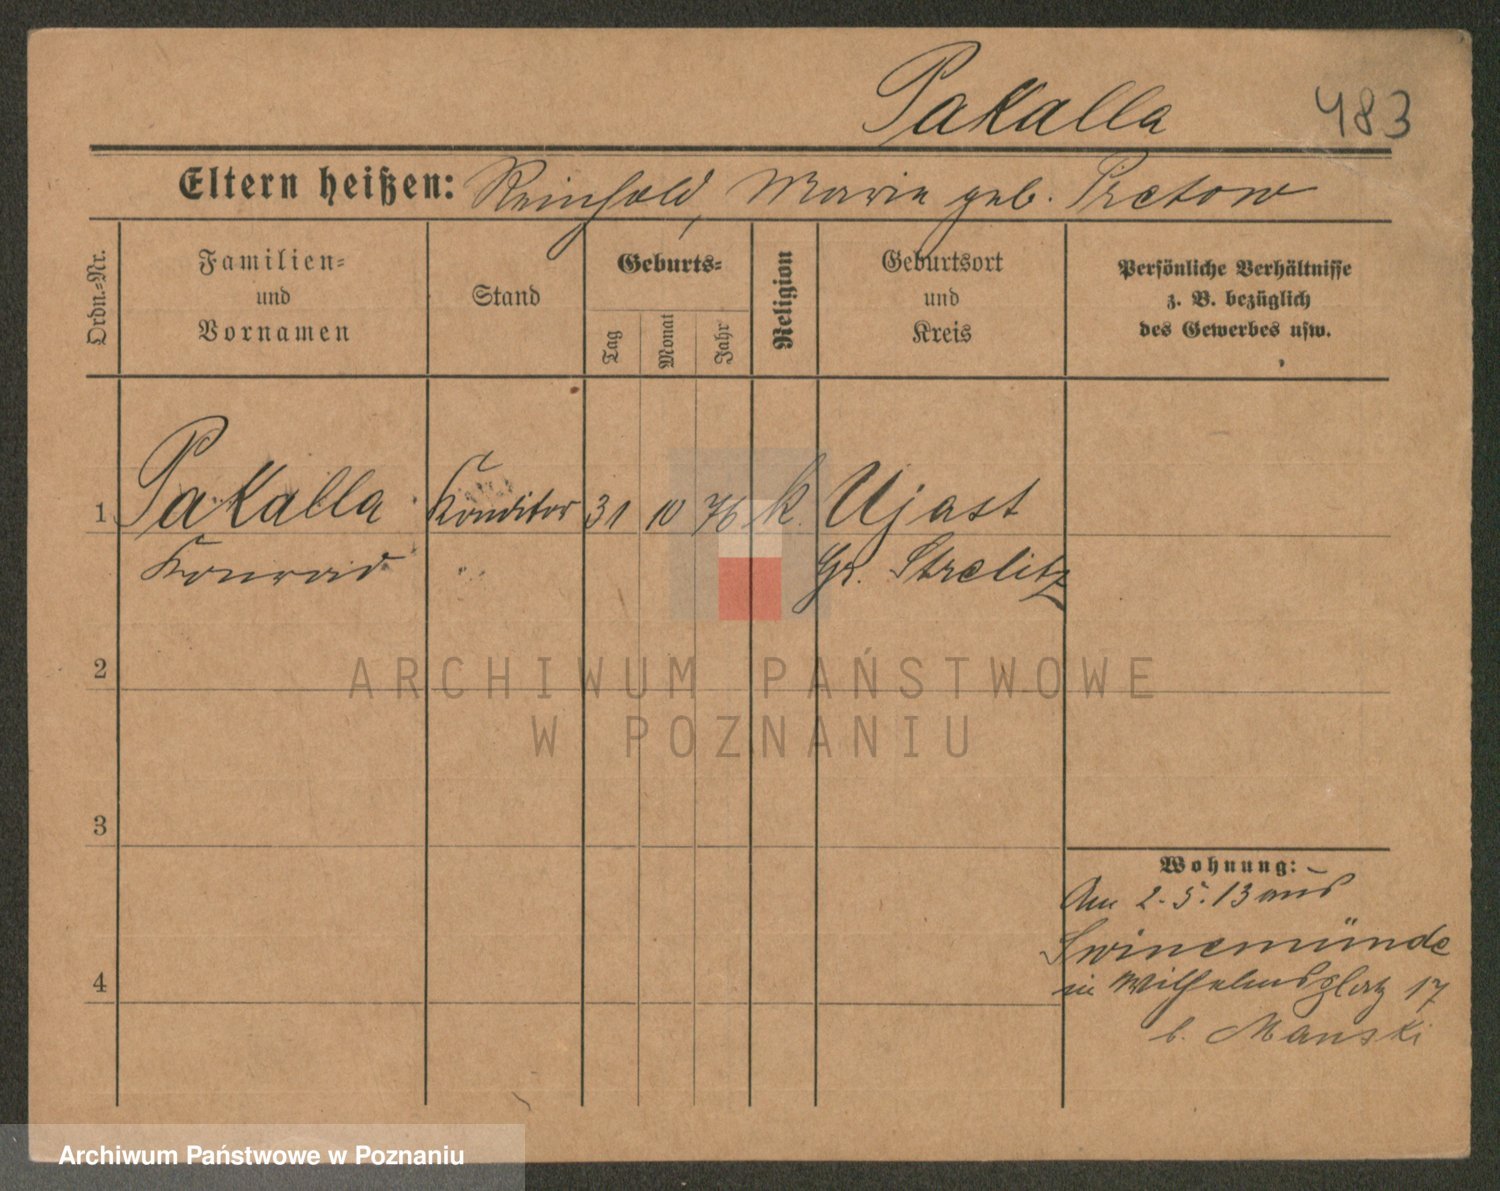 Pakalla 483
Eltern heißen: Reinhold, Marie geb. Pretow
Ordn.=Nr.
Familien=
und
Vornamen
Stand
Geburts=
Tag
Monat
Jahr
Religion
Geburtsort
und
Kreis
Persönliche Verhältnisse
z. B. bezüglich
des Gewerbes usw.
1 Pakalla Konditor 31 10 76 k. Ujast
Konrad Gr. Strelitz
2
ARCHIWUM PAŃSTWOWE
W POZNANIU
3
Wohnung:
Am 2.5.13 aus
Swinemünde
4
in Wilhelmsplatz 17
b. Manski
Archiwum Państwowe w Poznaniu